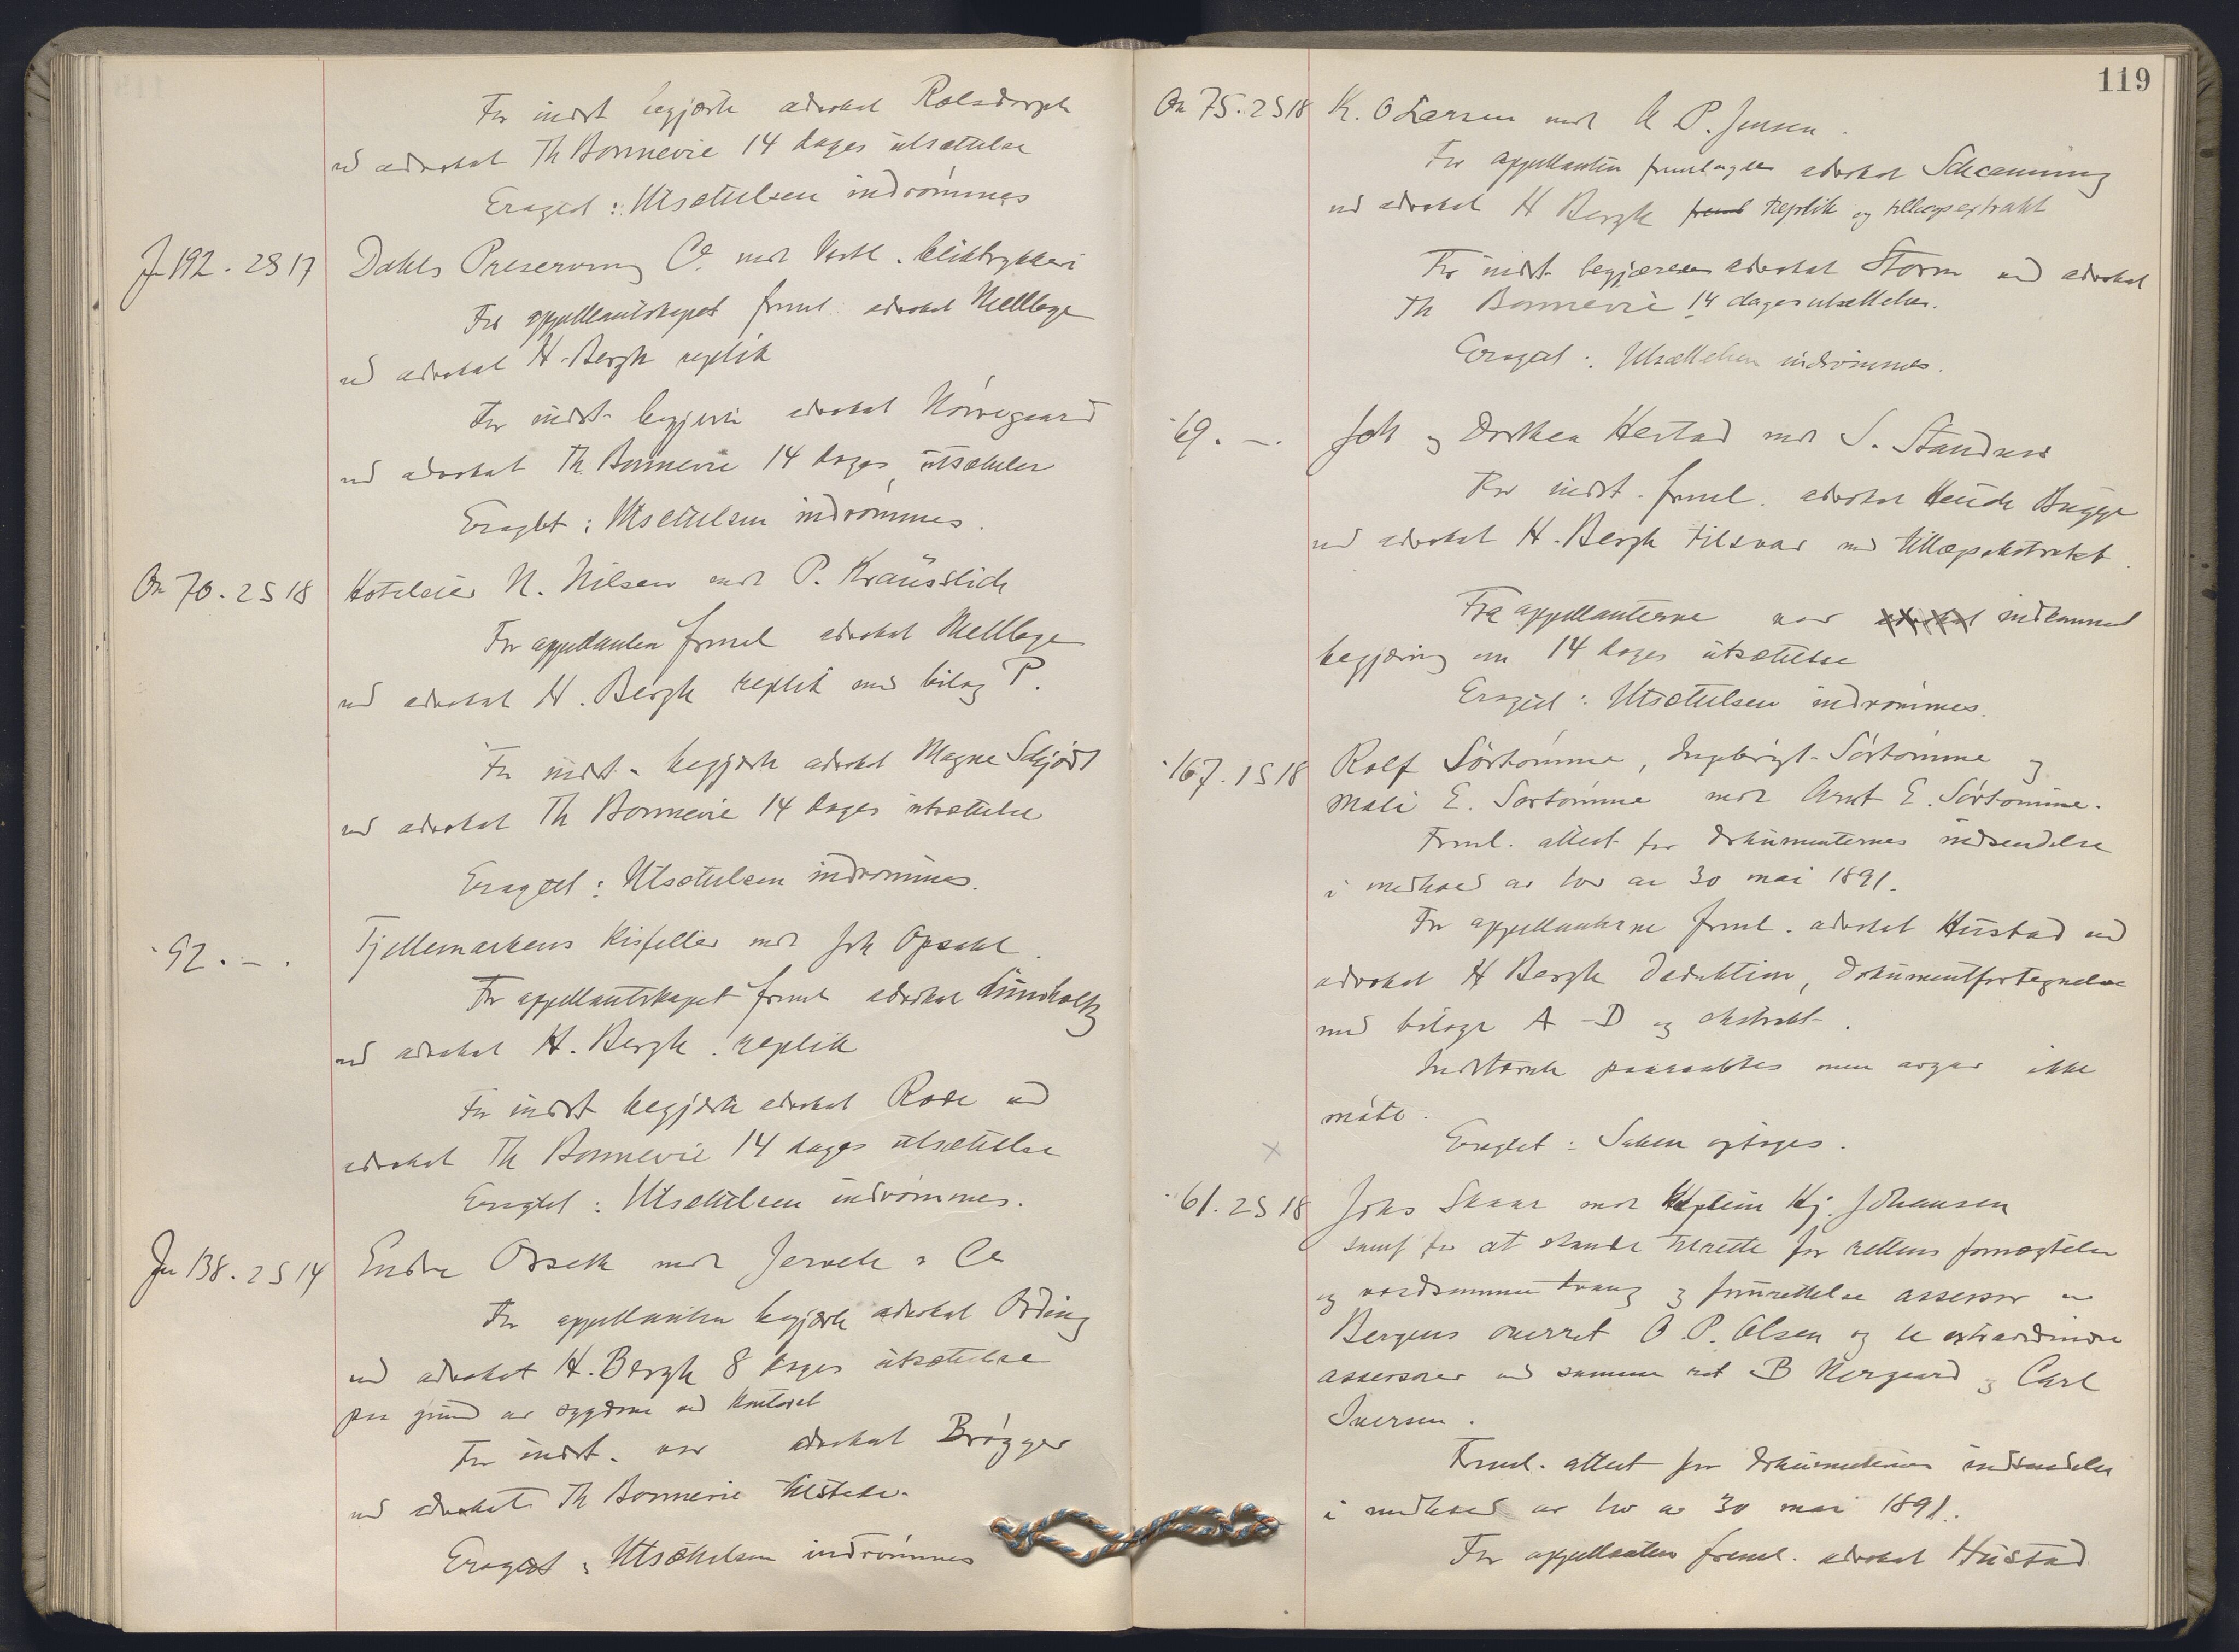 For indst begjærte advokat Rolsdorph
ved advokat Th Bonnevie 14 dages utsættelse
Eragtet: Utsættelsen indrømmes
Ju 192. 2S 17 Dahls Preserving Co. mot Vestl. bliktrykkeri
For appellantskapet freml advokat Mellbye
ved advokat H. Bergh replik
For indst. begjærte advokat Nörregaard
ved advokat Th. Bonnevie 14 dages utsættelse
Eragtet: Utsættelsen indrømmes.
On 70. 2 S 18 Hoteleier N. Nilsen mot P. Kraüsslich
For appellanten freml advokat Mellbye
ved advokat H. Bergh replik med bilag P.
For indst. begjærte advokat Magne Schjødt
ved advokat Th Bonnevie 14 dages utsættelse
Eragtet: Utsættelsen indrømmes.
" 92. – . Fjellemarkens Kisfelter mot Joh Opsahl.
For appellantskapet freml advokat Lünvholtz
ved advokat H. Bergh. replik
For indst begjærte advokat Rode ved
advokat Th Bonnevie 14 dages utsættelse
Eragtet: Utsættelsen indrømmes.
Ju 138. 2 S 14 Endre Orseth mot Jervell & Co
For appellanten begjærte advokat Ording
ved advokat H. Bergh 8 dages utsættelse
paa grund av sygdom ved kontoret
For indst. var advokat Brøgger
ved advokat Th Bonnevie tilstede.
Eragtet: Utsættelsen indrømmes
119
On 75. 2 S 18 K. O Larsen mot A P. Jensen.
For appellanten fremlagde advokat Schcanning
ved advokat H Bergh freml replik og tillægsextrakt
For indst. begjærede advokat Storm ved advokat
Th Bonnevie 14 dages utsættelse.
Eragtet: Utsættelsen indrømmes.
" 69. – . Joh og Dorthea Hestad mot S. Standnes
For indst. freml. advokat Heide Bugge
ved advokat H. Bergh tilsvar med tillægsekstrakt.
Fra appellanterne var advokat indkommet
begjæring om 14 dages utsættelse
Eragtet: Utsættelsen indrømmes.
" 167. 1 S 18 Rolf Sörtömme, Ingebrigt Sörtömme og
Mali E. Sörtömme mot Arnt E. Sörtömme.
Freml. attest for dokumenternes indsendelse
i medhold av lov av 30 mai 1891.
For appellanterne freml. advokat Hustad ved
advokat H Bergh deduktion, dokumentfortegnelse
med bilage A – D og ekstrakt.
Indstævnte paaraabtes men avgav ikke
møte.
Eragtet: Saken optages.
x
" 61. 2 S 18 Johs Skaar mot Kaptein Hj. Johansen
samt for at stande tilrette for rettens formentlige
og voldsomme tvang og forurettelse assessor ve
Bergens overret O. P. Olsen og de extraordinære
assessorer ved samme ret B Nergaard og Carl
Iversen.
Freml. attest for dokumenternes indsendelse
i medhold av lov av 30 mai 1891.
For appellanten freml. advokat Hustad